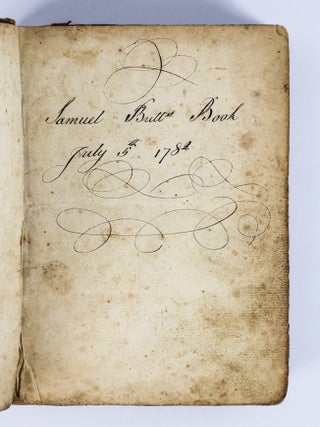 Samuel Butts Book
July 5th 1782